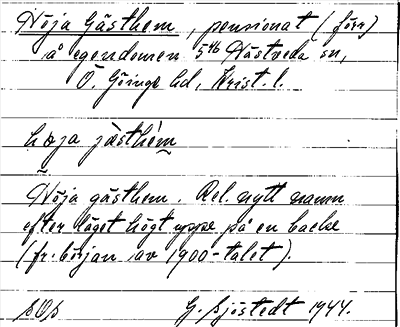 Höja Gästhem, pensionat (förr)
å egendomen 5⁴⁶ Nästveda sn,
Ö. Göinge hd, Krist. l.
höja jästhèm
Höja gästhem. Rel. nytt namn
efter läget högt uppe på en backe
(fr. början av 1900-talet).
G. Sjöstedt 1944.